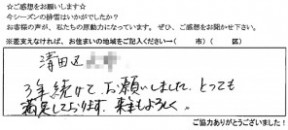 ☆ご感想をお願いします☆
今シーズンの排雪はいかがでしたか？
お客様の声が、私たちの原動力になっています。ぜひ、ご感想をお聞かせ下さい。
※差支えなければ、お住まいの地域をご記入ください→（　　　市）（　　　区）
清田区
3年続けて お願いしました。とっても
満足しております。来年もよろしく。
ご協力ありがとうございました！